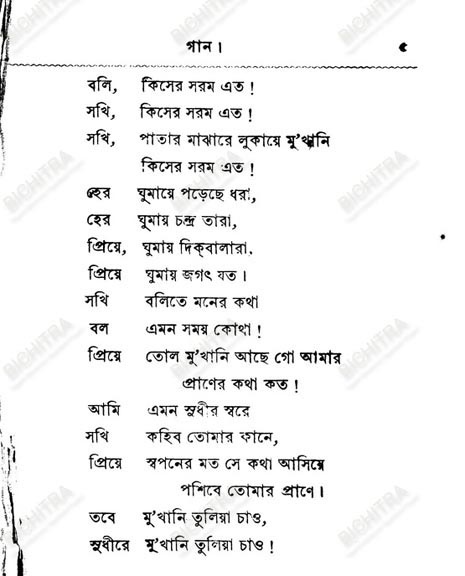 গান।
৫
বলি, কিসের সরম এত!
সখি, কিসের সরম এত!
সখি, পাতার মাঝারে লুকায়ে মু'খানি
কিসের সরম এত!
হের ঘুমায়ে পড়েছে ধরা,
হের ঘুমায় চন্দ্র তারা,
প্রিয়ে, ঘুমায় দিক্‌বালারা.
প্রিয়ে ঘুমায় জগৎ যত।
সখি বলিতে মনের কথা
বল এমন সময় কোথা!
প্রিয়ে তোল মু'খানি আছে গো আমার
প্রাণের কথা কত!
আমি এমন সুধীর স্বরে
সখি কহিব তোমার কানে,
প্রিয়ে স্বপনের মত সে কথা আসিয়ে
পশিবে তোমার প্রাণে।
তবে মু'খানি তুলিয়া চাও,
সুধীরে মু'খানি তুলিয়া চাও!
BICHITRA